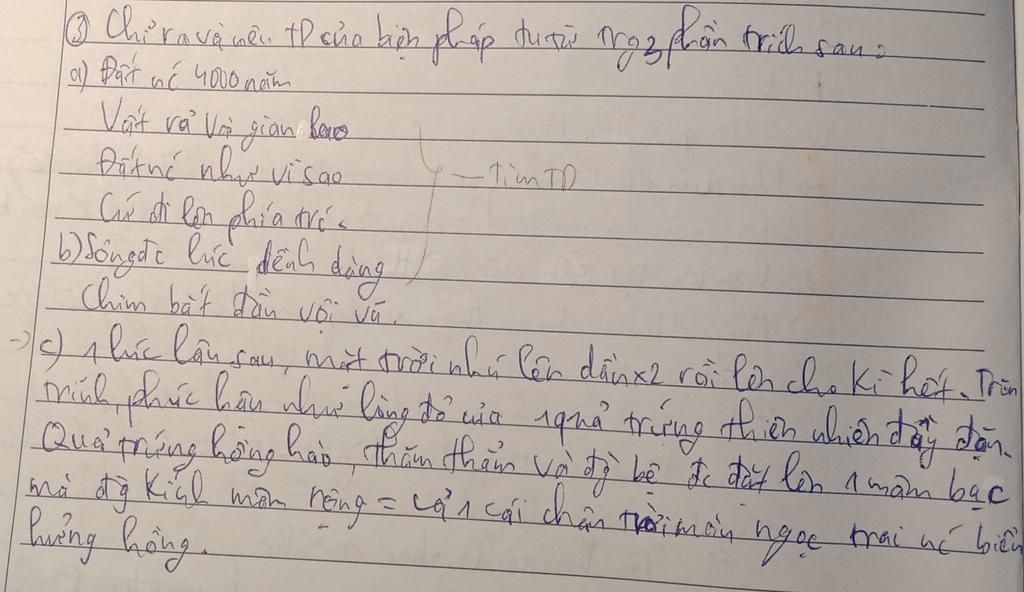 ③ Chỉ ra và nêu tD của biện pháp tu từ trg 3 phần trích sau:
a) Đất nc 4000 năm
Vất vả và gian lao
Đất nc như vì sao
— Tìm TD
Cứ đi lên phía trc.
b) Sông đc lúc dềnh dàng
Chim bắt đầu vội vã.
→ c) 1 lúc lâu sau, mặt trời nhú lên dần x2 rồi lên cho kì hết. Tròn
trĩnh, phúc hậu như lòng đỏ của 1 quả trứng thiên nhiên đầy đặn.
Quả trứng hồng hào, thăm thẳm và đg bệ đc đặt lên 1 mâm bạc
mà đg kính mâm rộng = cả 1 cái chân trời màu ngọc trai nc biển
hửng hồng.